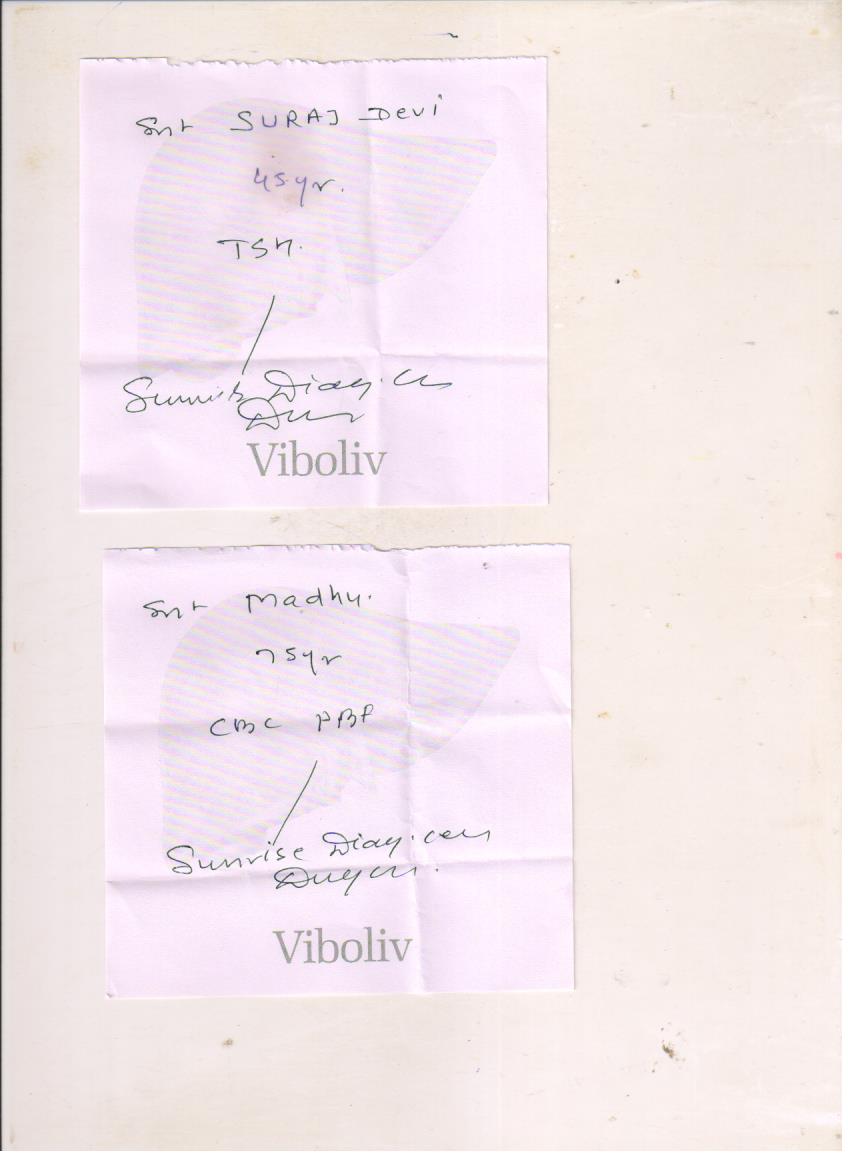 Smt SURAJ Devi
45 yr.
TSH.
Sunrise Diag. Cen
Viboliv
Smt Madhu.
75yr
CBC PBF
Sunrise Diag. cen
Viboliv